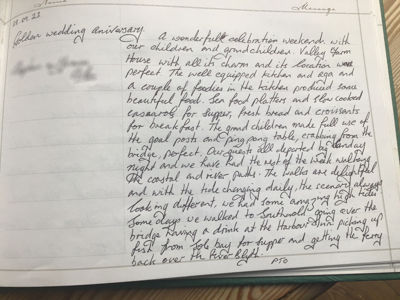 Name
Message
Golden wedding anniversary.
A wonderful celebration weekend with
our children and grandchildren Valley Farm
House with all its charm and its location was
perfect. The well equipped kitchen and aga and
a couple of foodies in the kitchen produced some
beautiful food. Sea food platters and slow cooked
casseroles for supper, fresh bread and croissants
for breakfast. The grand children made full use of
the goal posts and ping pong table, crabbing from the
bridge, perfect. Our guests all departed by Sunday
night and we have had the rest of the week walking
the coastal and river paths. The walks are delightful
and with the tide changing daily, the scenery always
looking different, we had some amazing high tides
Some days we walked to Southwold going over the
bridge having a drink at the Harbour Inn picking up
fish from Sole bay for supper and getting the ferry
back over the River Blyth.
PTO